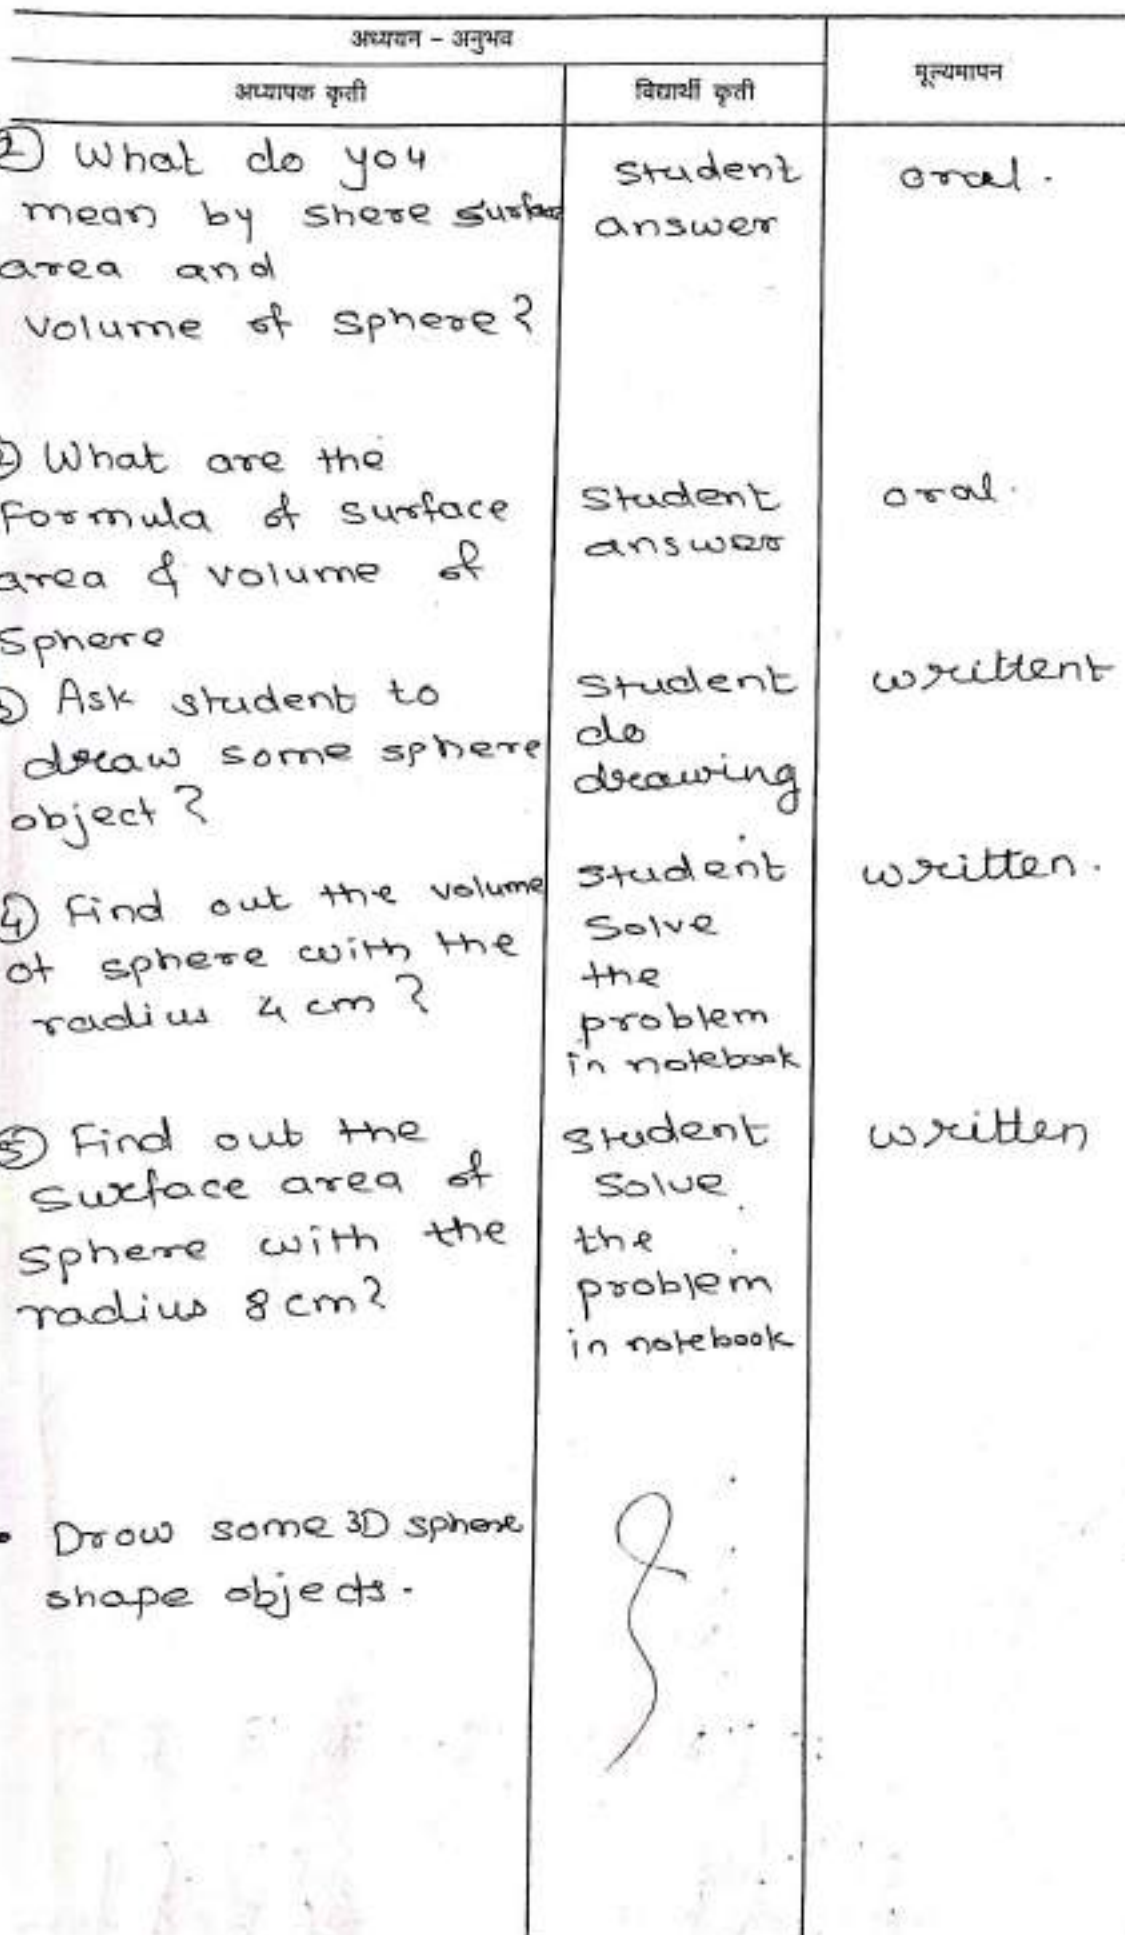 अध्ययन – अनुभव
अध्यापक कृती
विद्यार्थी कृती
मूल्यमापन
What do you
mean by shere surface
area and
volume of sphere?
student
answer
oral.
What are the
Formula of surface
area & volume of
Sphere
Student
answer
oral.
Ask student to
draw some sphere
object?
Student
do
drawing
writtent
④ Find out the volume
of sphere with the
radius 4 cm?
Student
Solve
the
problem
in notebook
written.
⑤ Find out the
surface area of
sphere with the
radius 8 cm?
Student
Solve
the
problem
in notebook
written
• Drow some 3D sphere
shape objects.